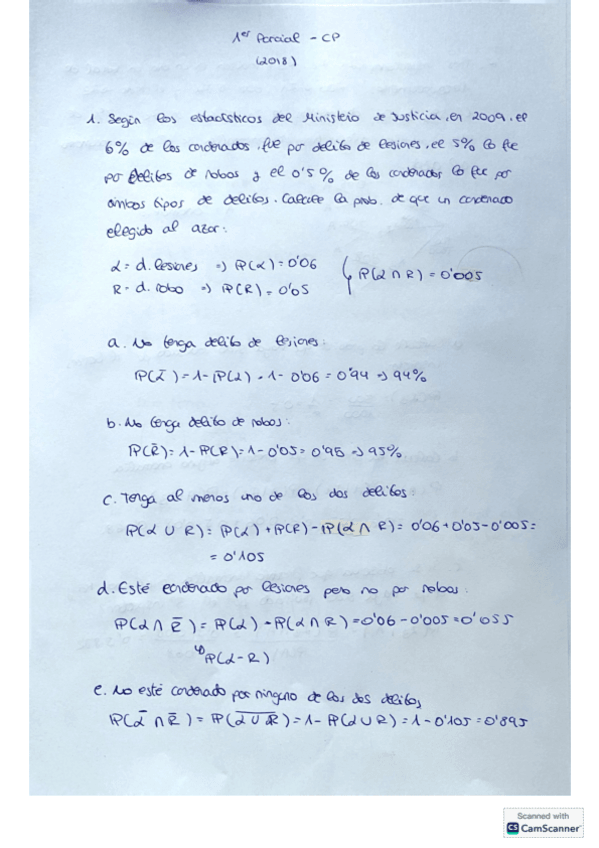 1er Parcial - CP
(2018)
1. Según los estadísticos del Ministerio de Justicia, en 2009, el
6% de los condenados fue por delito de lesiones, el 5% lo fue
por delitos de robos y el 0'5% de los condenados lo fue por
ambos tipos de delitos. Calcule la prob. de que un condenado
elegido al azar:
L = d. lesiones => P(L) = 0'06
R = d. robo => P(R) = 0'05
P(L ∩ R) = 0'005
a. No tenga delito de lesiones:
P(L̄) = 1 - P(L) = 1 - 0'06 = 0'94 => 94%
b. No tenga delito de robos:
P(R̄) = 1 - P(R) = 1 - 0'05 = 0'95 => 95%
c. Tenga al menos uno de los dos delitos:
P(L ∪ R) = P(L) + P(R) - P(L ∩ R) = 0'06 + 0'05 - 0'005 =
= 0'105
d. Esté condenado por lesiones pero no por robos:
P(L ∩ R̄) = P(L) - P(L ∩ R) = 0'06 - 0'005 = 0'055
P(L - R)
e. No esté condenado por ninguno de los dos delitos
P(L̄ ∩ R̄) = P(L ∪ R)‾ = 1 - P(L ∪ R) = 1 - 0'105 = 0'895
Scanned with
CS CamScanner